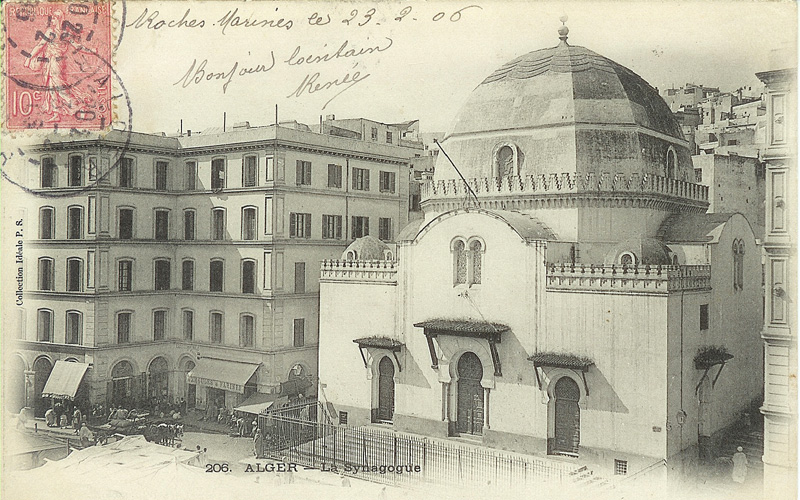 RÉPUBLIQUE FRANÇAISE
10c
Roches-Marines le 23-2-06
Bonjour lointain
Renée
Collection Idéale P. S.
206. ALGER — La Synagogue